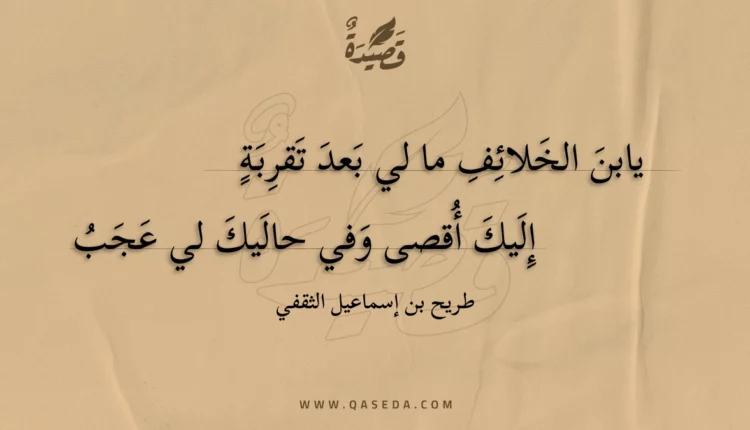 قَصِيدَةٌ
يابنَ الخَلائِفِ ما لي بَعدَ تَقرِبَةٍ
إِلَيكَ أُقصى وَفي حالَيكَ لي عَجَبُ
طريح بن إسماعيل الثقفي
WWW.QASEDA.COM